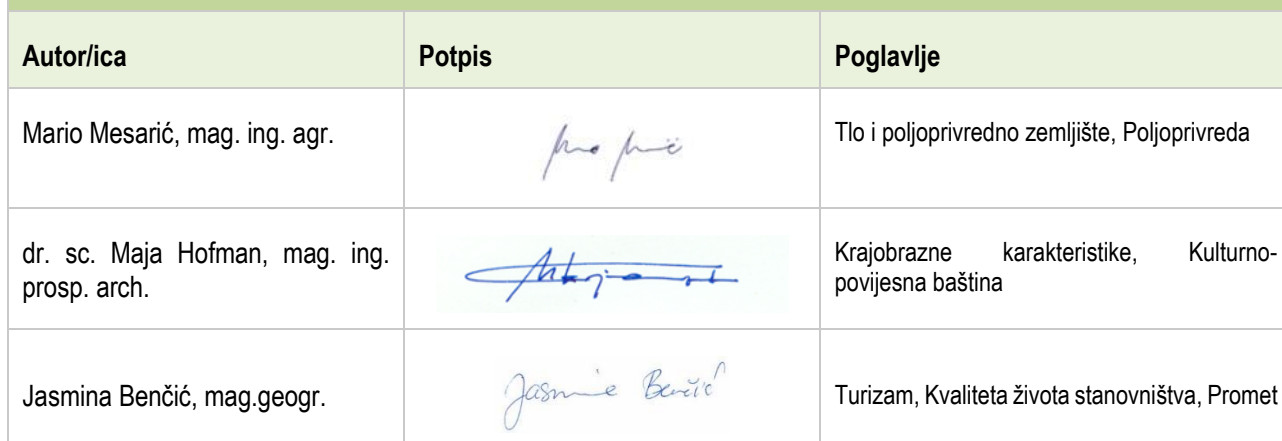 Autor/ica Potpis Poglavlje
Mario Mesarić, mag. ing. agr. Tlo i poljoprivredno zemljište, Poljoprivreda
dr. sc. Maja Hofman, mag. ing.
prosp. arch.
Krajobrazne karakteristike, Kulturno-
povijesna baština
Jasmina Benčić, mag.geogr. Jasmina Benčić Turizam, Kvaliteta života stanovništva, Promet